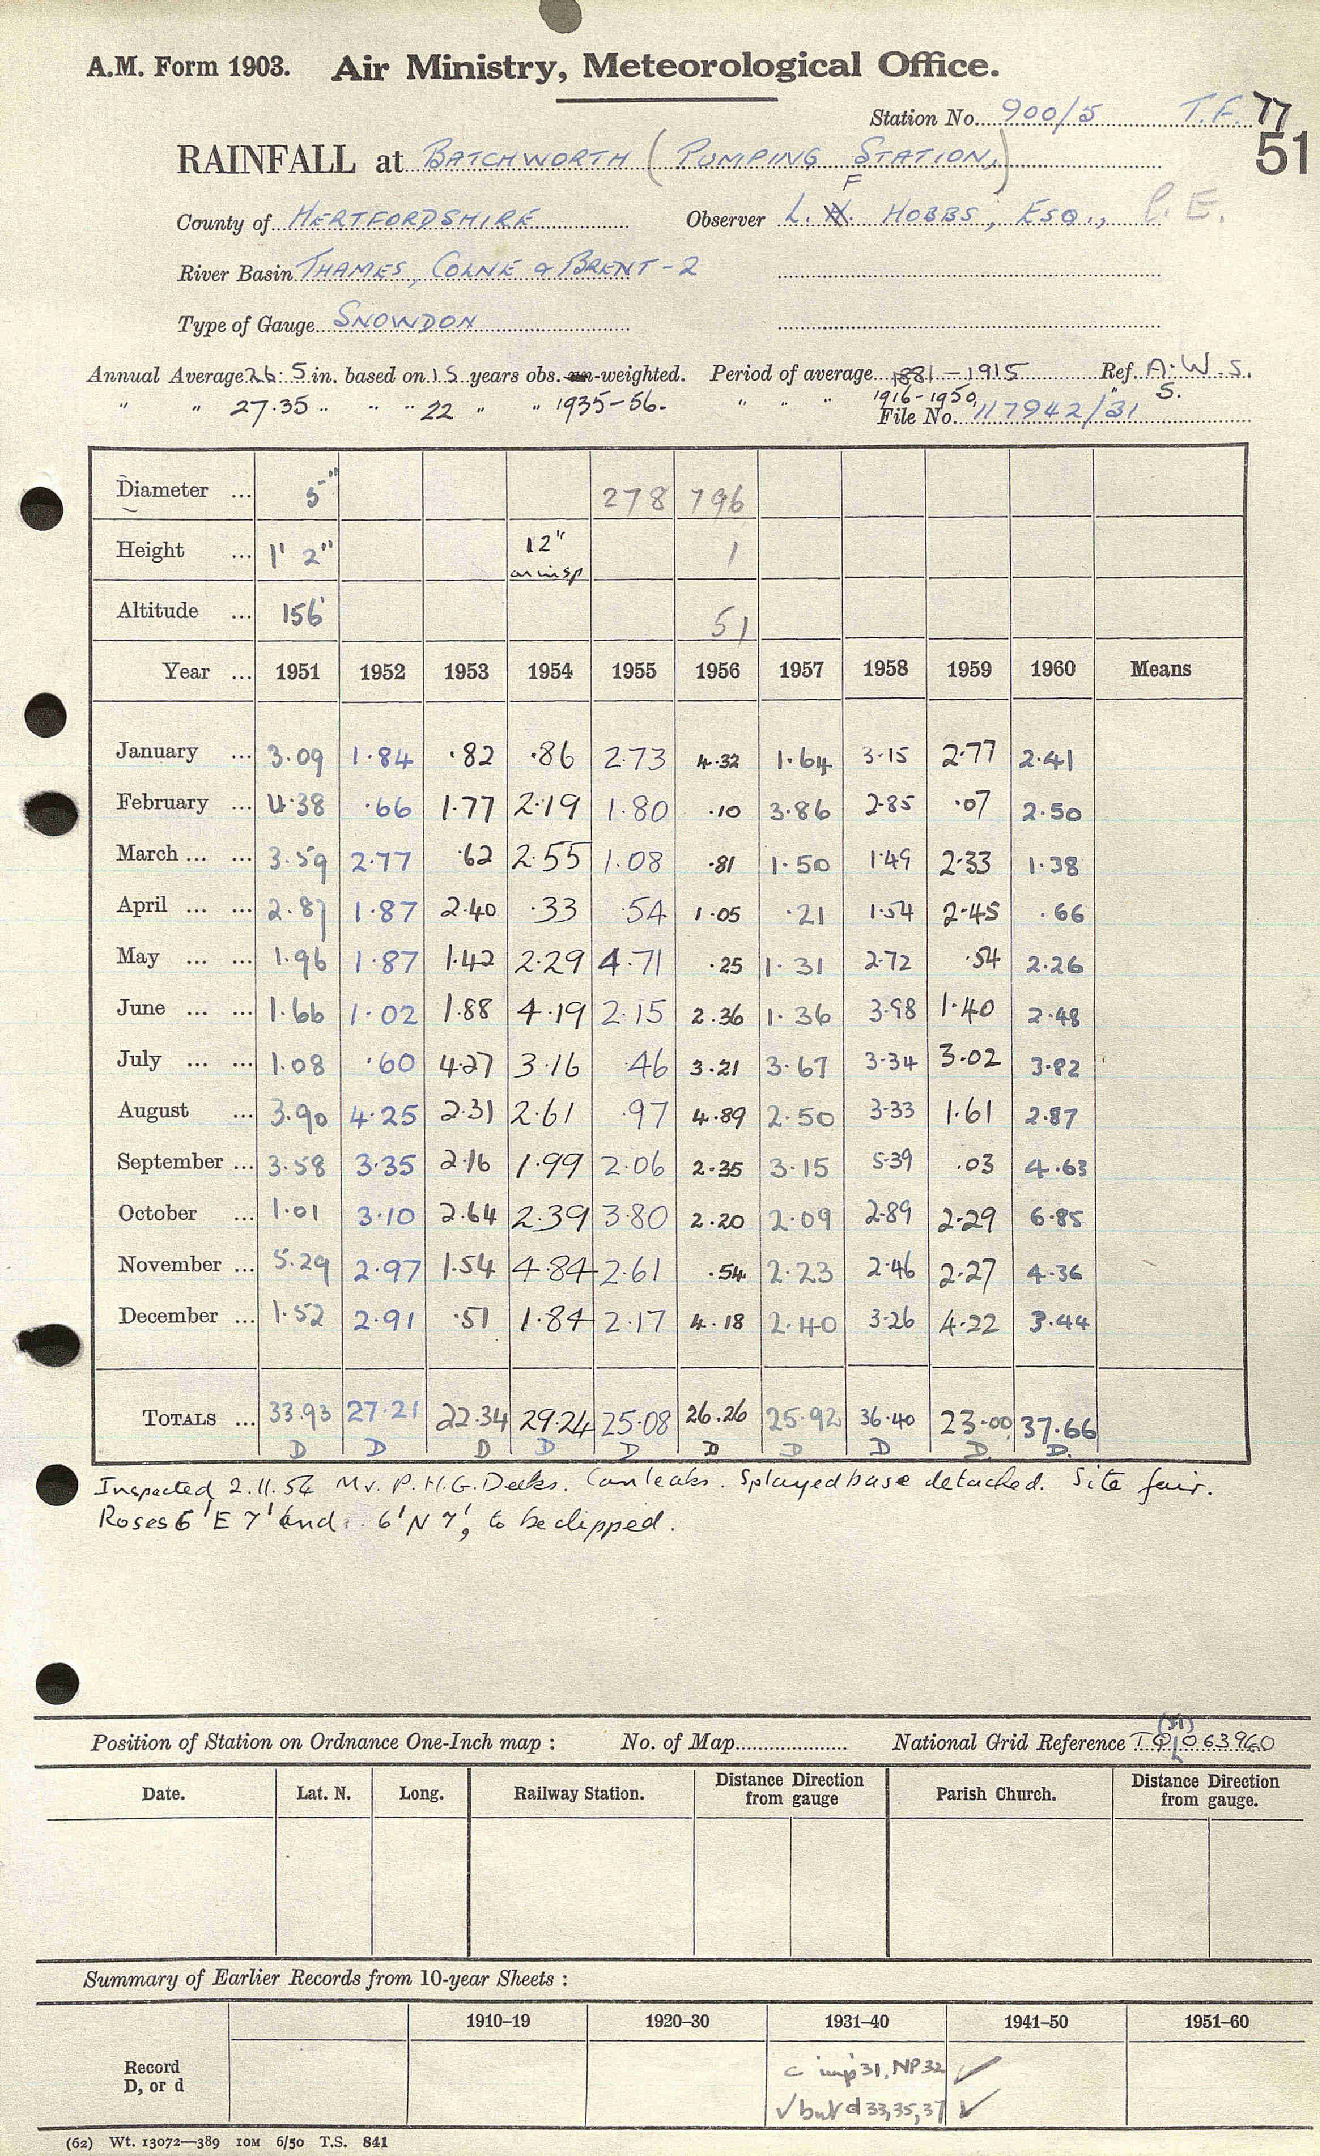 A.M. Form 1903. Air Ministry, Meteorological Office.
Station No. 900/5 T.F. 77
51
RAINFALL at BATCHWORTH (PUMPING STATION.)
County of HERTFORDSHIRE Observer L. F HOBBS, ESQ., C.E.
River Basin THAMES, COLNE & BRENT-2
Type of Gauge SNOWDON
Annual Average 26.5 in. based on 15 years obs. un-weighted. Period of average 1881-1915 Ref. A.W.S.
" " 27.35 " " " 22 " " 1935-56. " " " 1916-1950 " S.
File No. 117942/31
Diameter ... 5" 278 796
Height ... 1' 2" 12" on insp 1
Altitude ... 156' 51
Year ... 1951 1952 1953 1954 1955 1956 1957 1958 1959 1960 Means
January ... 3.09 1.84 .82 .86 2.73 4.32 1.64 3.15 2.77 2.41
February ... 4.38 .66 1.77 2.19 1.80 .10 3.86 2.85 .07 2.50
March ... ... 3.59 2.77 .62 2.55 1.08 .81 1.50 1.49 2.33 1.38
April ... ... 2.87 1.87 2.40 .33 .54 1.05 .21 1.54 2.45 .66
May ... ... 1.96 1.87 1.42 2.29 4.71 .25 1.31 2.72 .54 2.26
June ... ... 1.66 1.02 1.88 4.19 2.15 2.36 1.36 3.98 1.40 2.48
July ... ... 1.08 .60 4.27 3.16 .46 3.21 3.67 3.34 3.02 3.82
August ... 3.90 4.25 2.31 2.61 .97 4.89 2.50 3.33 1.61 2.87
September ... 3.58 3.35 2.16 1.99 2.06 2.35 3.15 5.39 .03 4.63
October ... 1.01 3.10 2.64 2.39 3.80 2.20 2.09 2.89 2.29 6.85
November ... 5.29 2.97 1.54 4.84 2.61 .54 2.23 2.46 2.27 4.36
December ... 1.52 2.91 .51 1.84 2.17 4.18 2.40 3.26 4.22 3.44
TOTALS ... 33.93 27.21 22.34 29.24 25.08 26.26 25.92 36.40 23.00 37.66
D D D D D D D D D. D.
Inspected 2.11.54 Mr. P.H.G. Deeks. Can leaks. Splayed base detached. Site fair.
Roses 6' E 7' and 6' N 7', to be clipped.
Position of Station on Ordnance One-Inch map : No. of Map National Grid Reference TQ (51) 063960
Date. Lat. N. Long. Railway Station. Distance Direction from gauge Parish Church. Distance Direction from gauge.
Summary of Earlier Records from 10-year Sheets :
1910-19 1920-30 1931-40 1941-50 1951-60
Record D, or d
c imp 31, NP 32 ✓
✓ but d 33, 35, 37 ✓
(62) Wt. 13072—389 10M 6/50 T.S. 841